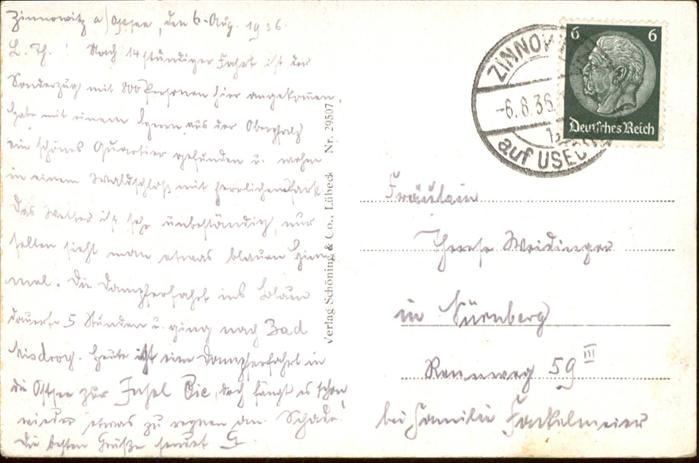 Zinnowitz a/Ostsee, den 6. Aug. 1936.
L. Th.! Nach 14stündiger Fahrt ist der
Sonderzug mit 800 Personen hier angekommen,
habe mit einem Herrn aus der Oberpfalz
ein schönes Quartier gefunden u. wohne
in einem Waldschloß mit herrlichem Park.
Das Wetter ist sehr unbeständig, nur
selten sieht man etwas blauen Him-
mel. Die Dampferfahrt ins
dauerte 5 Stunden u. ging nach Bad
Misdroy. Heute ist eine Dampferfahrt in
die Ostsee zur Insel Oie, doch fängt es schon
wieder etwas zu regnen an. Schade.
Die besten Grüße sendet G
Verlag Schöning & Co., Lübeck Nr. 29507
ZINNOWITZ
-6.8.36
auf USEDOM
6 6
Deutsches Reich
Fräulein
Therese Weidinger
in Nürnberg
Rennweg 59 III
bei Familie Fackelmeier